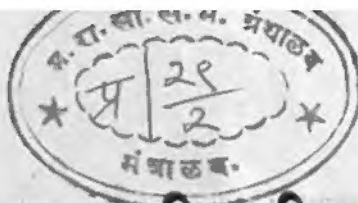 म. रा. सा. सं. मं. ग्रंथालय
प्र २९
२
मंत्रालय.